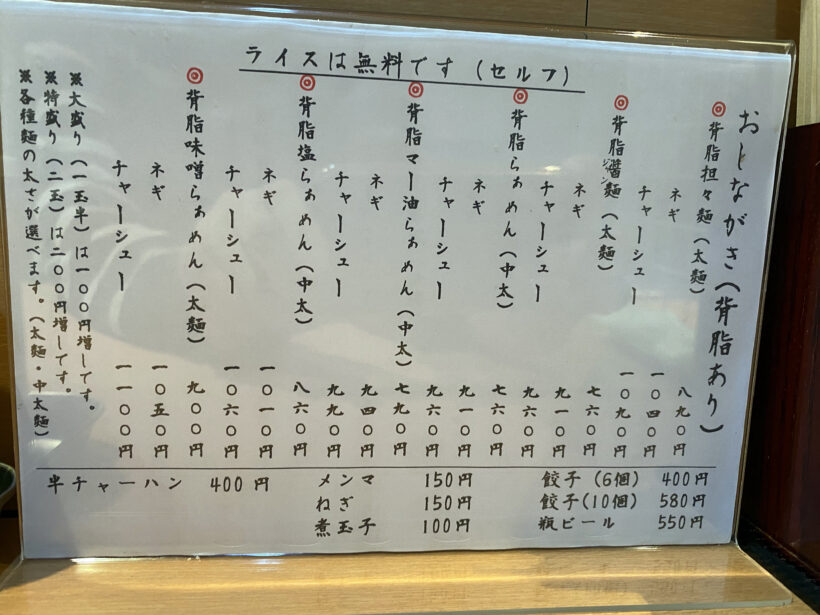 ライスは無料です(セルフ)
おしながき(背脂あり)
◎背脂担々麺(太麺) 八九〇円
ネギ 一〇四〇円
チャーシュー 一〇九〇円
◎背脂醤麺(太麺) 七六〇円
ネギ 九一〇円
チャーシュー 九六〇円
◎背脂らぁめん(中太) 七六〇円
ネギ 九一〇円
チャーシュー 九六〇円
◎背脂マー油らぁめん(中太) 七九〇円
ネギ 九四〇円
チャーシュー 九九〇円
◎背脂塩らぁめん(中太) 八六〇円
ネギ 一〇一〇円
チャーシュー 一〇六〇円
◎背脂味噌らぁめん(太麺) 九〇〇円
ネギ 一〇五〇円
チャーシュー 一一〇〇円
※大盛り(一玉半)は一〇〇円増しです。
※特盛り(二玉)は二〇〇円増しです。
※各種麺の太さが選べます。(太麺・中太麺)
半チャーハン 400円
メンマ 150円
ねぎ 150円
煮玉子 100円
餃子(6個) 400円
餃子(10個) 580円
瓶ビール 550円